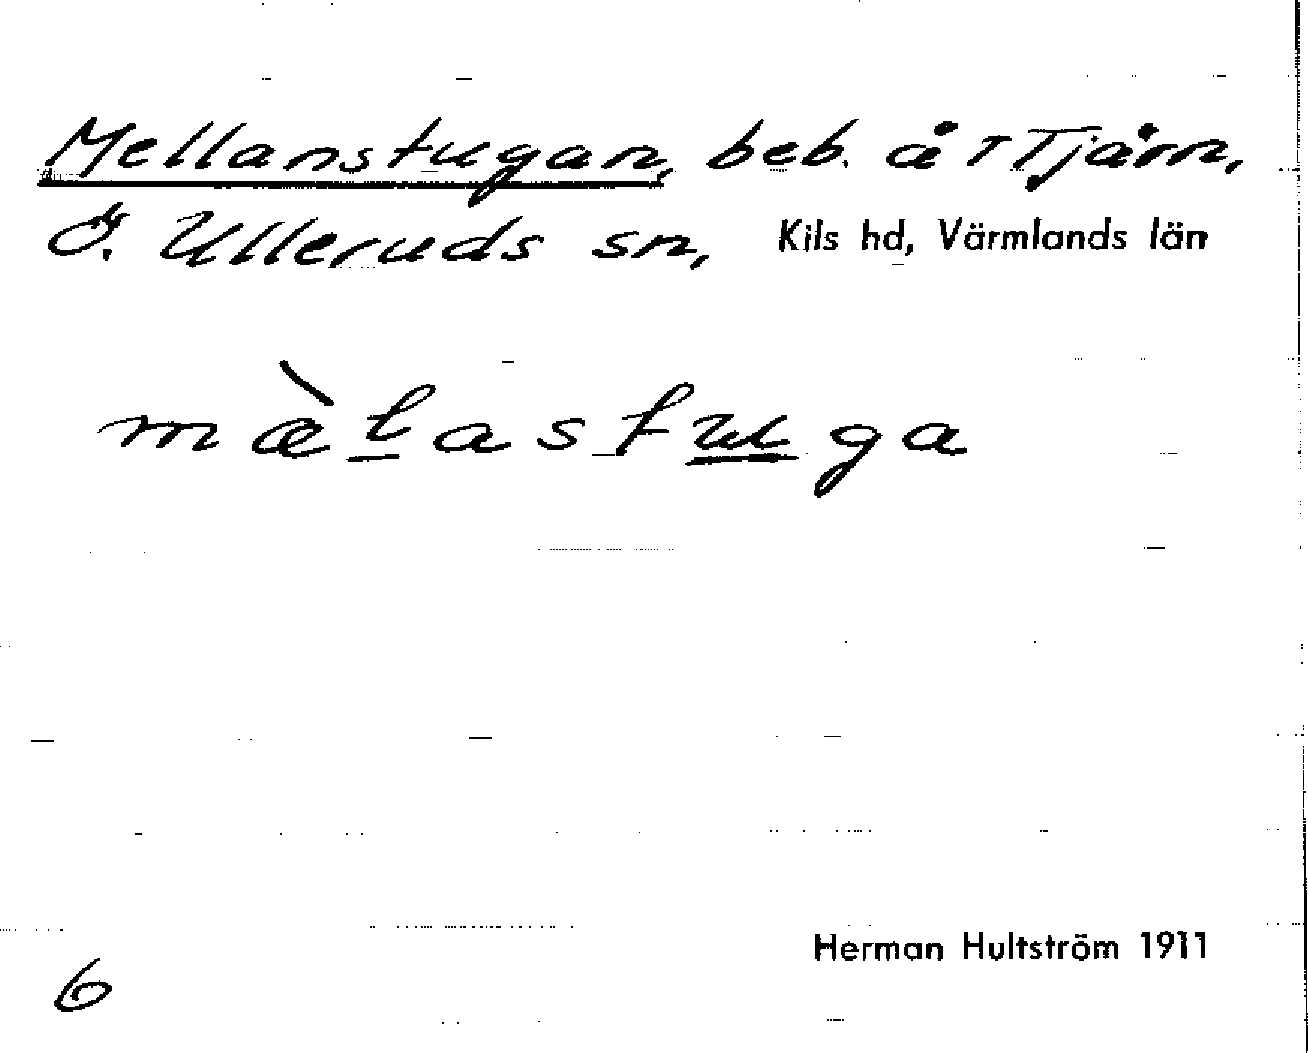 Mellanstugan, beb. å T Tjärn,
Ö. Ulleruds sn, Kils hd, Värmlands län
mæ̀lastuga
Herman Hultström 1911
6